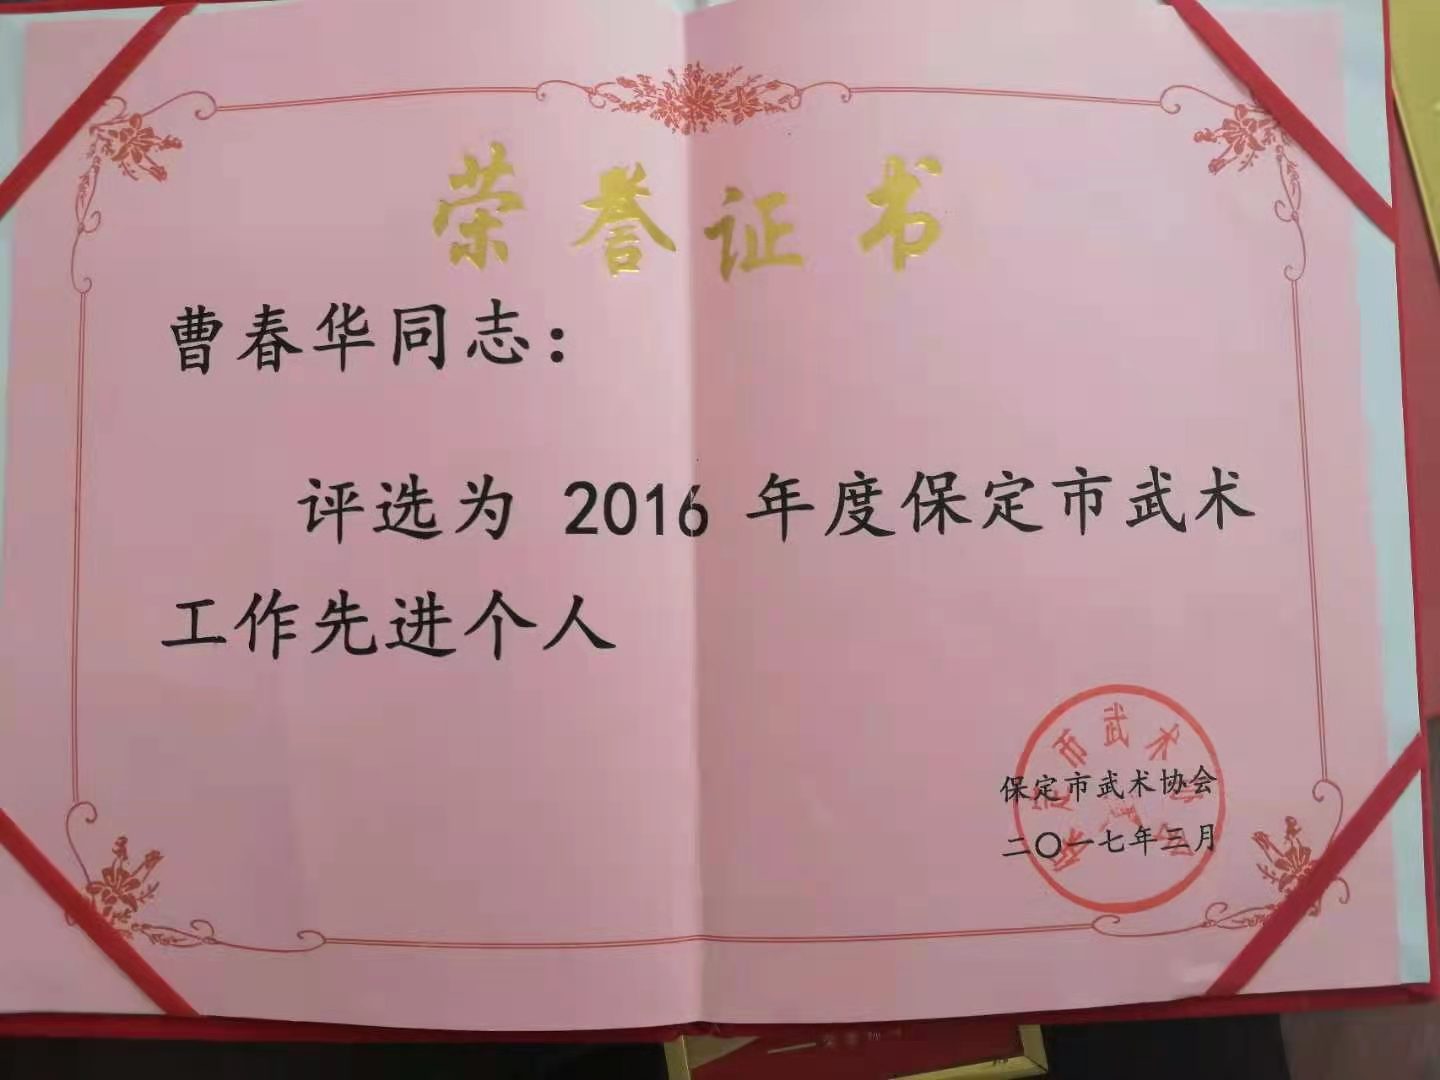 荣誉证书
曹春华同志：
评选为 2016 年度保定市武术
工作先进个人
保定市武术协会
二〇一七年三月
保定市武术协会